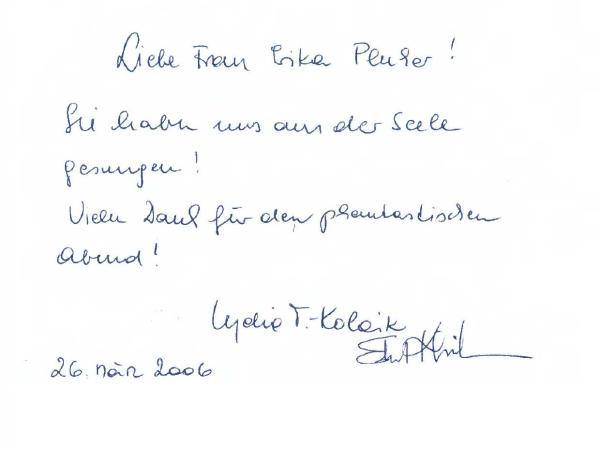 Liebe Frau Erika Pluhar!
Sie haben uns aus der Seele
gesungen!
Vielen Dank für den phantastischen
Abend!
Lydia T.-Kolarik
26. März 2006